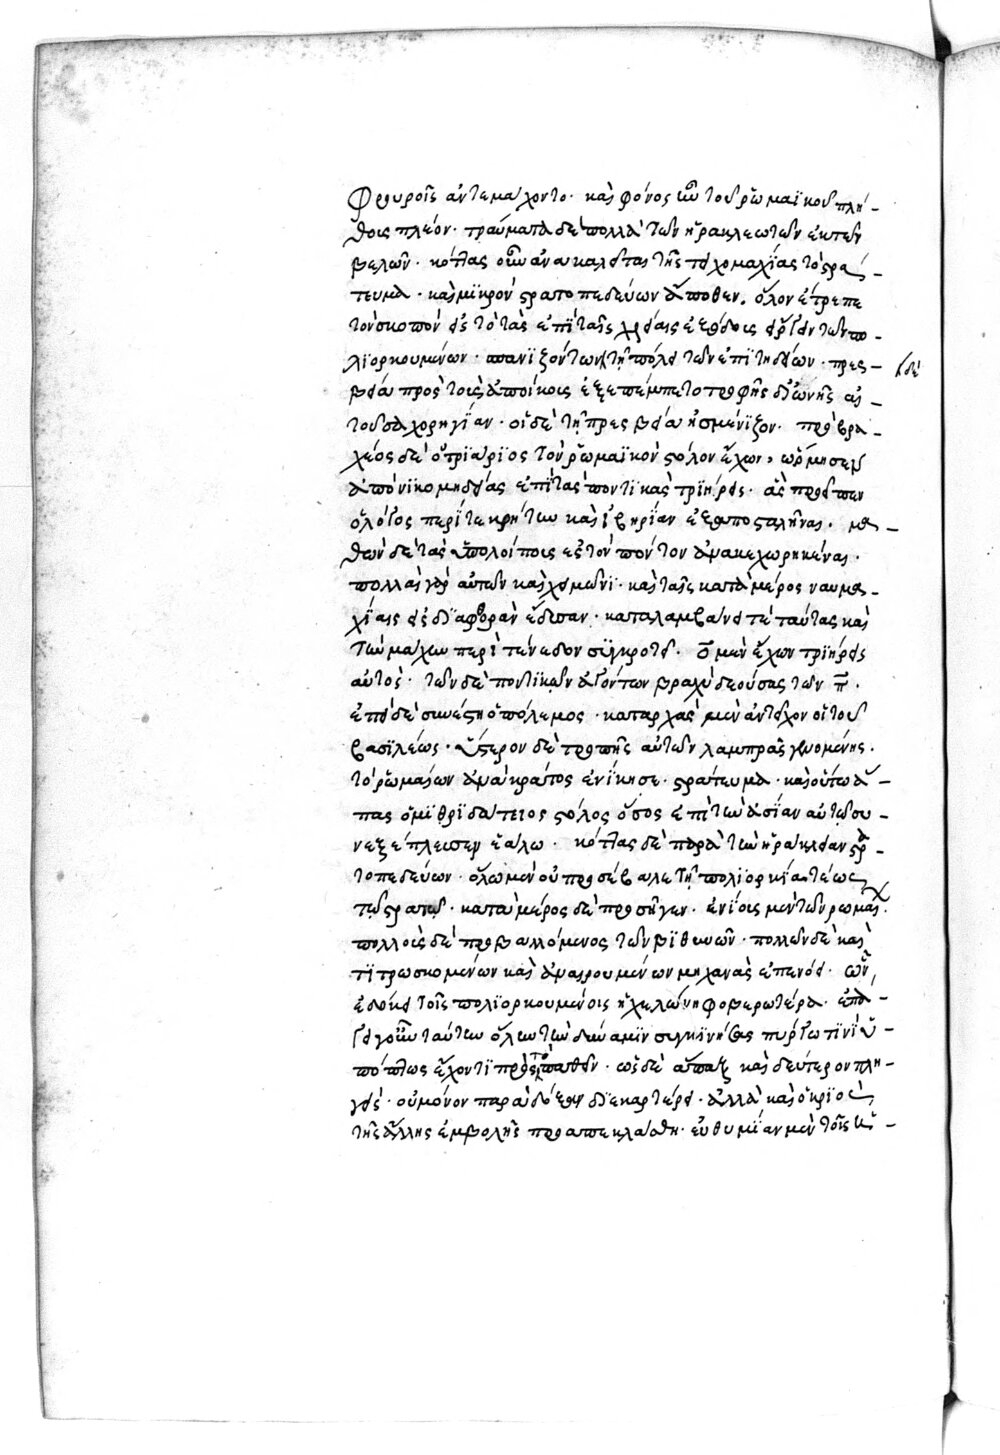 Φρουροῖς ἀντεμάχοντο· καὶ φόνος ἦν τοῦ ῥωμαϊκοῦ πλή-
θους πλέον· τραύματα δὲ πολλὰ τῶν ἡρακλεωτῶν ἐκ τῶν
βελῶν· κόττας οὖν ἀνακαλεῖται τῆς τειχομαχίας τὸ στρά-
τευμα· καὶ μικρὸν στρατοπεδεύων ἄποθεν, ὅλον ἔτρεπε
τὸν σκοπὸν εἰς τὸ τὰς ἐπὶ ταῖς χρείαις ἐξόδους εἴργειν τῶν πο-
λιορκουμένων· σπανιζόντων τῇ πόλει τῶν ἐπιτηδείων· πρεσ-
βεία πρὸς τοὺς ἀποίκους ἐξεπέμπετο τροφῆς δι' ὠνῆς αἰ-
τοῦσα χορηγίαν· οἱ δὲ τῇ πρεσβείᾳ ἠσμένιζον· πρὸ βρα-
χέος δὲ ὁ τριάριος τὸν ῥωμαϊκὸν στόλον ἔχων, ὥρμησεν
ἀπὸ νικομηδείας ἐπὶ τὰς ποντικὰς τριήρεις· ἃς προεῖπεν
ὁ λόγος περί τε κρήτην καὶ ἰβηρίαν ἐξαποσταλῆναι· μα-
θὼν δὲ τὰς ὑπολοίπους ἐς τὸν πόντον ἀνακεχωρηκέναι·
πολλαὶ γὰρ αὐτῶν καὶ χειμῶνι· καὶ ταῖς κατὰ μέρος ναυμα-
χίαις εἰς διαφθορὰν ἔδυσαν· καταλαμβάνει τε ταύτας καὶ
τὴν μάχην περὶ τένεδον συγκροτεῖ· ο̅ μὲν ἔχων τριήρεις
αὐτός· τῶν δὲ ποντικῶν ἀγόντων βραχὺ δεούσας τῶν π̅·
ἐπεὶ δὲ συνέστη ὁ πόλεμος· κατ' ἀρχὰς μὲν ἀντεῖχον οἱ τοῦ
βασιλέως· ὕστερον δὲ τροπῆς αὐτῶν λαμπρᾶς γενομένης·
τὸ ῥωμαίων ἀνὰ κράτος ἐνίκησε· στράτευμα· καὶ οὕτω ἅ-
πας ὁ μιθριδάτειος στόλος ὅσος ἐπὶ τὴν ἀσίαν αὐτῷ συ-
νεξέπλευσεν ἑάλω· κόττας δὲ παρὰ τὴν ἡράκλειαν στρα-
τοπεδεύων· ὅλῳ μὲν οὐ προσέβαλε τῇ πολιορκίᾳ τέως
τῷ στρατῷ· κατὰ μέρος δὲ προσῆγεν· ἐνίους μὲν τῶν ῥωμαίων·
πολλοὺς δὲ προβαλλόμενος τῶν βιθυνῶν· πολλῶν δὲ καὶ
τιτρωσκομένων καὶ ἀναιρουμένων μηχανὰς ἐπενόει· ὧν
ἐδόκει τοῖς πολιορκουμένοις ἡ χελώνη φοβερωτέρα· ἐπά-
γει γοῦν ταύτην ὅλην τὴν δύναμιν συγκινήσας πύργῳ τινὶ ὑ-
πόπτως ἔχοντι πρὸς τὸ παθεῖν· ὡς δὲ ἅπαξ καὶ δεύτερον πλη-
γείς· οὐ μόνον παρὰ δόξαν διεκαρτέρει· ἀλλὰ καὶ ὁ κριὸς
τῆς ἄλλης ἐμβολῆς προαπεκλάσθη· εὐθυμίαν μὲν τοῖς ἡ-